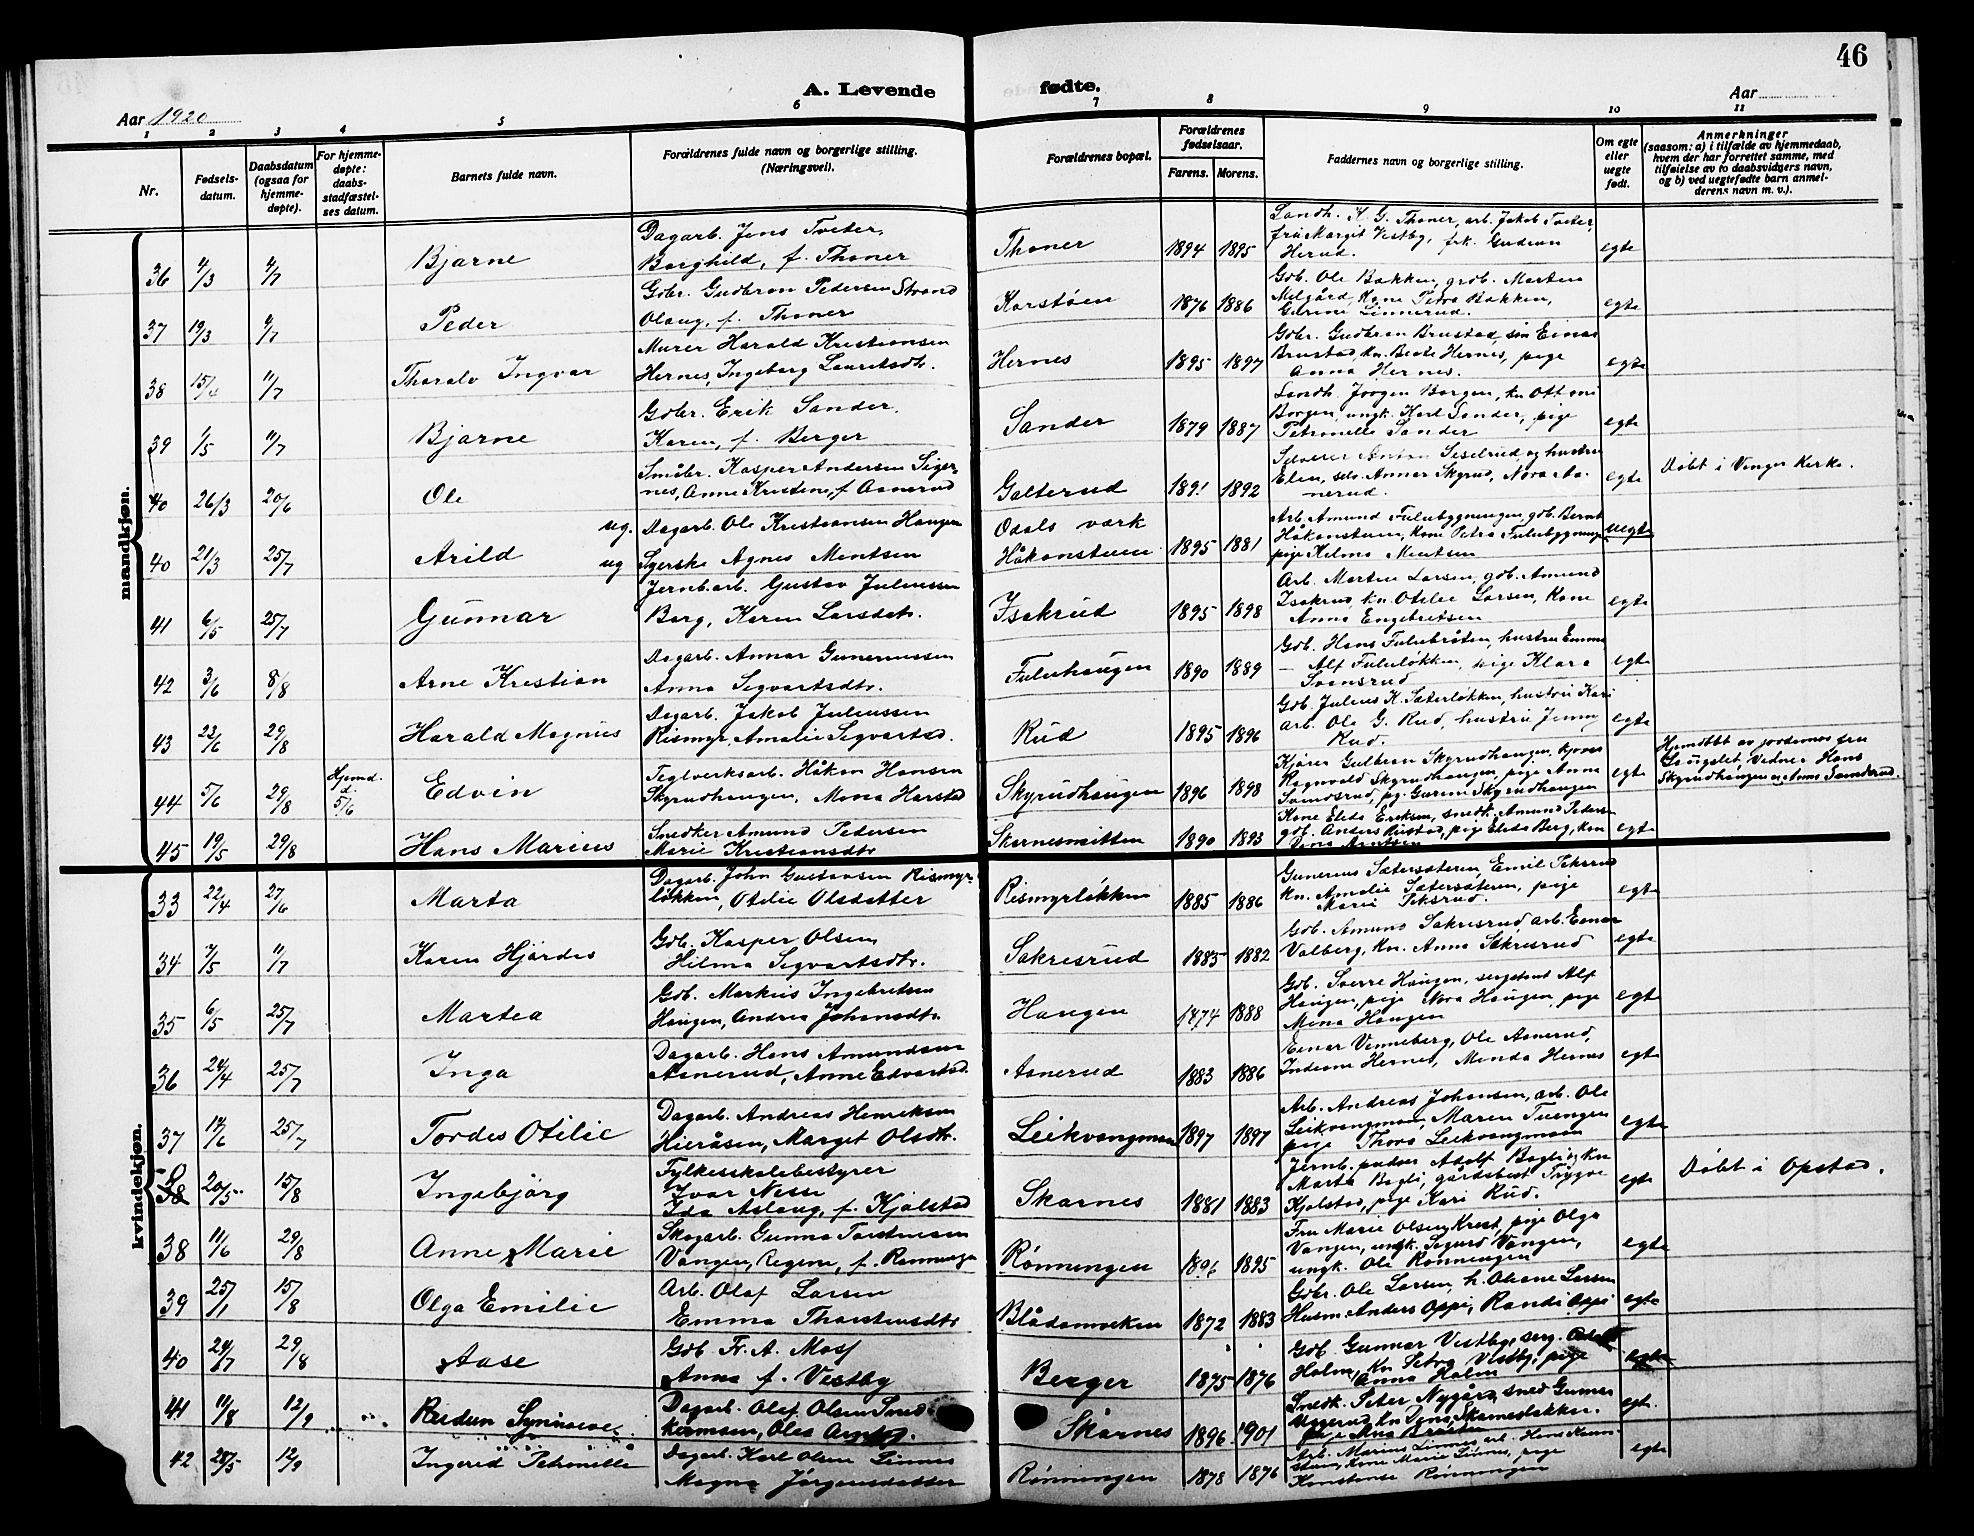 46
A. Levende fødte.
Aar 1920
Aar
1 2 3 4 5 6 7 8 9 10 11
Nr.
Fødsels-
datum.
Daabsdatum
(ogsaa for
hjemme-
døpte).
For hjemme-
døpte:
daabs-
stadfæstel-
ses datum.
Barnets fulde navn.
Forældrenes fulde navn og borgerlige stilling.
(Næringsvei).
Forældrenes bopæl.
Forældrenes
fødselsaar.
Farens. Morens.
Faddernes navn og borgerlige stilling.
Om egte
eller
uegte
født.
Anmerkninger
(saasom: a) i tilfælde av hjemmedaab,
hvem der har forrettet samme, med
tilføielse av to daabsvidners navn,
og b) ved uegtefødte barn anmel-
derens navn m. v.).
mandkjøn.
36 4/3 4/7 Bjarne
Dagarb. Jens Tveter,
Borghild, f. Thoner
Thoner 1894 1895
Landh. K. G. Thoner, arb. Jakob Tveter,
fru Margit Vestby, frk. Gudrun
Herud.
egte
37 19/3 4/7 Peder
Gbr. Gudbran Pedersen Strand
Olaug, f. Thoner
Korstöen 1876 1886
Gdb. Ole Bakken, grdb. Marten
Melgård, Kone Petra Bakken,
Linnerud.
egte
38 15/4 11/7 Thoralv Ingvar
Murer Harald Kristiansen
Hernes, Ingeborg Lauritsdtr.
Hernes 1895 1897
Gdbr. Gudbran Brustad, sön Einar
Brustad, kn. Beate Hernes, pige
Anna Hernes.
egte
39 1/5 11/7 Bjarne
Gdbr. Erik Sander.
Karen, f. Berger
Sander 1879 1887
Landh. Jörgen Borgen, kn
Borgen, ungk. Karl Sander, pige
Petronelle Sander
egte
40 26/3 20/6 Ole
Småbr. Kasper Andersen Siger-
nes, Anne Kristine, f. Aanerud
Galterud 1891 1892
Seselrud, og hustru
Elen, selv. Annar Skyrud, Nora Aa-
nerud.
egte
Döbt i Vinger Kirke.
40 21/3 25/7 Arild
ug. Dagarb. Ole Kristiansen Haugen
ug Syerske Agnes Mentsen
Odals værk
Håkonstuen 1895 1881
Arb. Amund Fulubygningen, gdb. Bernt
Håkonstuen, Kone Petra Fulubygningen
pige Hilma Mentsen
uegte
41 6/5 25/7 Gunnar
Jernb.arb. Gustav Juliussen
Berg, Karen Larsdatr.
Isakrud 1895 1898
Arb. Martin Larsen, gdb. Amund
Isakrud, kn. Otilie Larsen, Kone
Anna Engebretsen
egte
42 3/6 8/8 Arne Kristian
Dagarb. Annar Gunerussen
Anna Sigvartsdtr.
Fuluhaugen 1890 1889
Gdb. Hans Fulubråten, hustru Emma
— Alf Fululökken, pige Klara
Svensrud
egte
43 22/6 29/8 Harald Magnus
Dagarb. Jakob Juliussen
Rismyr, Amalie Sigvartsd.
Rud 1895 1896
Gdb. Julius K. Sæterlökken, hustru Kari
arb. Ole G. Rud, hustru Jenny
Rud.
egte
44 5/6 29/8 Hjemd.
d.
5/6 Edvin
Teglverksarb. Håkon Hansen
Skyrudhaugen, Mona Harstad
Skyrudhaugen 1896 1898
Kjörer Gulbran Skyrudhaugen,
Ragnvald Skyrudhaugen, pige Anna
Sandsrud, pg. Gurine Skyrudhaugen
egte
Hjemdöbt av jordemor fru
Vidner Hans
Skyrudhaugen og Anna Sanderud.
45 19/5 29/8 Hans Marius
Snedker Amund Petersen
Marie Kristiansdtr
Skarnesmitten 1890 1893
Kone Elida Eriksen, snedk. Amund Petersen
gdb. Anders Rustad, pige Elida Berg, kone
egte
kvindekjøn.
33 22/4 27/6 Marta
Dagarb. John Gustavsen Rismyr-
løkken, Otilie Olsdatter
Rismyrlökken 1885 1886
Gunerius Sætersæteren, Emil Piksrud
Kn. Amalie Sætersæteren, pige
Marie Piksrud.
egte
34 7/5 11/7 Karen Hjördis
Gdb. Kasper Olsen
Hilma Sigvartsdtr.
Sakrisrud 1885 1882
Gdb. Amund Sakrisrud, arb. Einar
Valberg, kn. Anna Sakrisrud
egte
35 6/5 25/7 Martea
Gdb. Markus Ingebretsen
Haugen, Andrea Johansdtr.
Haugen 1874 1888
Gdb. Sverre Haugen, sergeant Alf
Haugen, pige Nora Haugen, pige
Mona Haugen
egte
36 24/4 25/7 Inga
Dagarb. Hans Amundsen
Asnerud, Anne Edvartsd.
Asnerud 1883 1886
Einar Vinneberg, Ole Asnerud,
Indiane Hernes, Minda Hernes
egte
37 14/6 25/7 Tordis Otilie
Dagarb. Andreas Henriksen
Hieråsen, Marget Olsdtr.
Leikvangmoen 1897 1897
Arb. Andreas Johansen, arb. Ole
Leikvangmoen, Maren Tuengen
pige Thora Leikvangmoen
egte
38 20/5 15/8 Ingebjörg
Fylkesskolebestyrer
Ivar Nesse
Ida Aslaug, f. Kjölstad
Skarnes 1881 1883
Adolf Bogli og kn
Marta Bogli, gårdsbest Trygve
Kjölstad, pige Kari Rud.
egte
Döbt i Opstad.
38 11/6 29/8 Anne Marie
Skogarb. Gunnar Torstensen
Vangen, Regine, f. Rönningen
Rönningen 1896 1895
Fru Marie Olsen Krest, pige Olga
Vangen, ungk. Sigurd Vangen,
ungk. Ole Rönningen
egte
39 25/1 15/8 Olga Emilie
Arb. Olaf Larsen
Emma Thorstensdtr
Blådamveiken 1872 1883
Gdbr. Ole Larsen, h. Oliane Larsen
Husm. Anders Oppi, Randi Oppi
egte
40 24/7 29/8 Aase
Gdb Fr. A. Moss
Anna f. Vestby
Berger 1875 1876
Gdb. Gunnar Vestby, serg.
Holm, kn Petra Vestby, pige
Anna Holm
egte
41 11/8 12/9 Reidun Synnöve
Dagarb. Olaf Olsen Sned
kermoen, Olea
Skarnes 1896 1901
Snedk. Peter Nygård, sned Gunnar
Uggerud, kn
pige Anna Bråten
egt.
42 28/5 12/9 Ingerid Petronille
Dagarb. Karl Olsen Linnes
Magna Jörgensdatter
Rönningen 1878 1876
Arb. Marius Linnes, arb. Hans
Kone Marie Linnes, pige
Konstanse Rönningen
egte